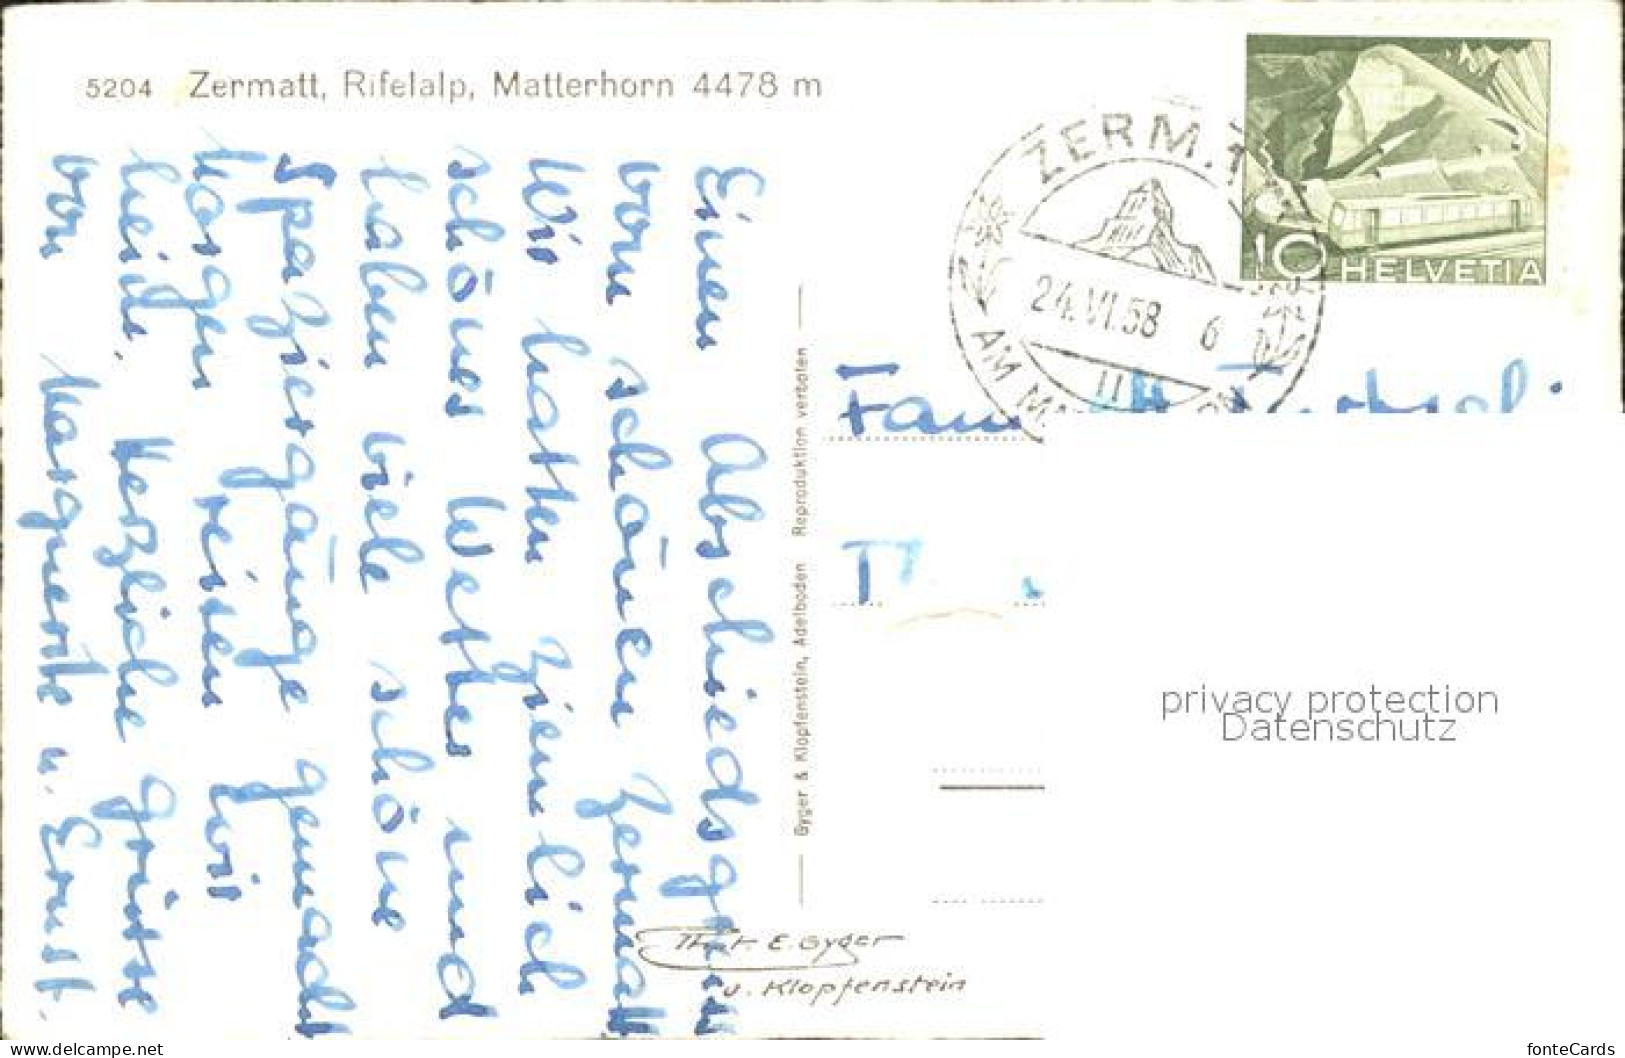 5204 Zermatt, Rifelalp, Matterhorn 4478 m
Einen Abschiedsgruss
vom schönen Zermatt
Wir hatten ziemlich
schönes Wetter und
haben viele schöne
Spaziergänge gemacht
Morgen reisen wir
heim. Herzliche grüsse
von Marguerite u. Ernst.
Gyger & Klopfenstein, Adelboden Reproduktion verboten
Phot. E. Gyger
u. Klopfenstein
ZERM
24.VI.58 6
AM
10 HELVETIA
Fam
privacy protection
Datenschutz
www.delcampe.net/my-site
fonteCards